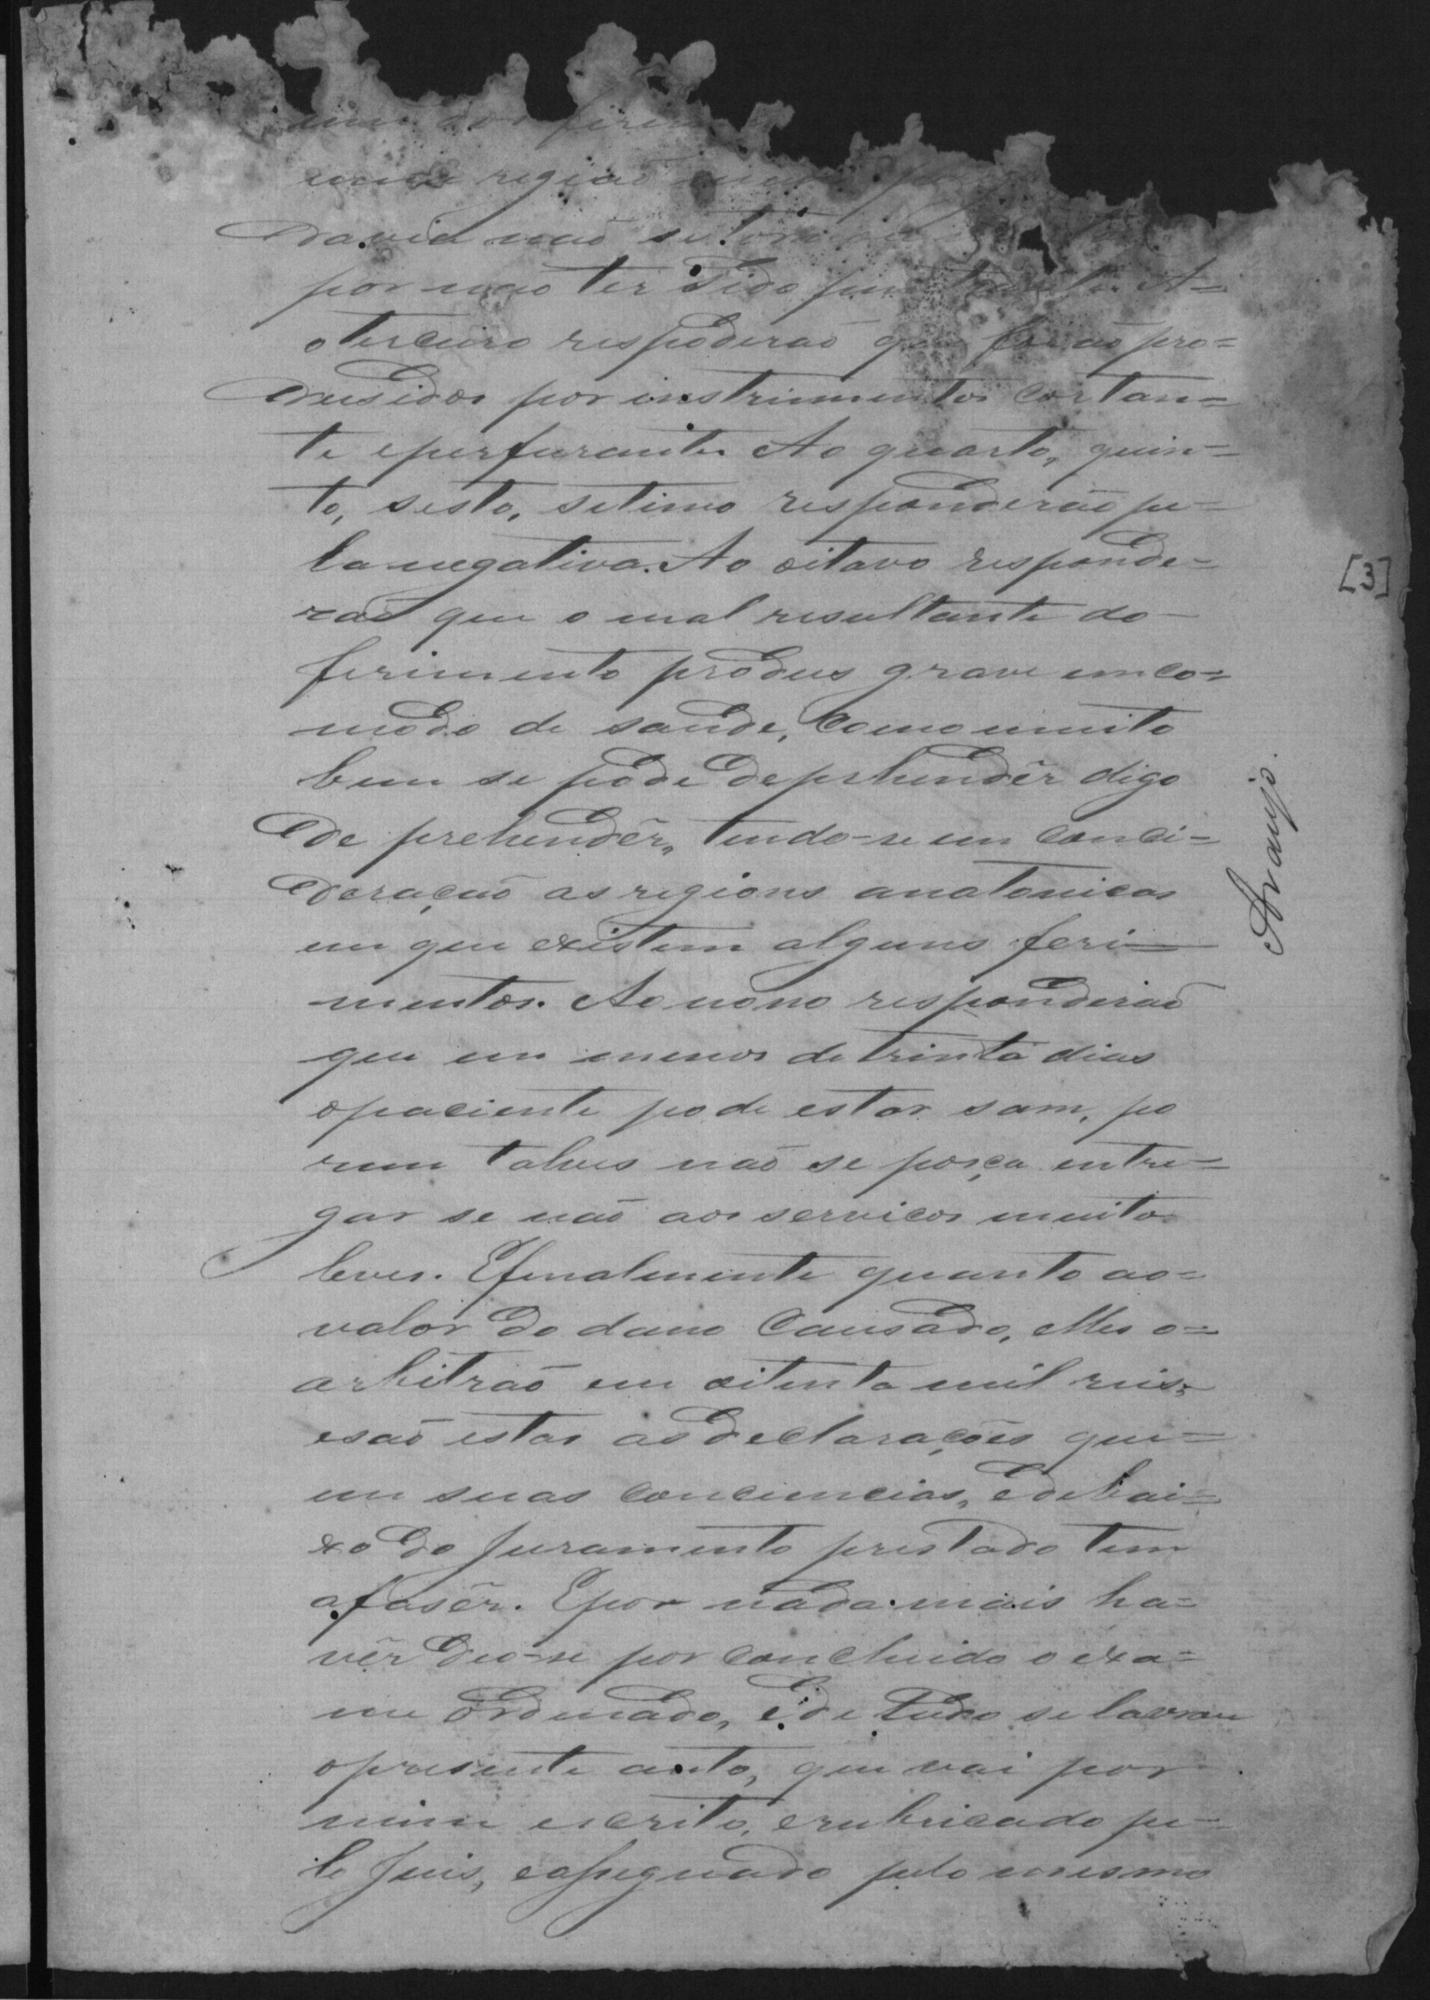 uma região
davia não se
por não ter sido penetrante. A-
o terceiro respoderão que forão pro=
dusidos por instrumentos cortan=
te eperfurante. Ao quarto, quin=
to, sesto, setimo responderão pe-
la negativa. Ao oitavo responde=
rão que o mal resultante do
ferimento produs grave emco=
modo de saude, como muito
bem se pode deprhendêr digo
de prehendêr, tendo-se em conci=
deração as regions anatonicas
em que existem alguns feri=
mentos. Ao nono responderão
que em menos de trinta dias
opaciente pode estar sam, po
rem talves não se poça entre=
gar se não aos servicos muito
leves. Efinalmente quanto ao=
valor do dano causado, elles o=
arbitrão em oitenta mil reis,
esão estas as declarações que=
em suas conciencias, edebai=
xo do Juramento prestado tem
afasêr. Epor nada mais ha=
vêr deo-se por concluido o exa=
me ordenado, ede tudo se lavrou
opresente auto, que vai por
mim escrito, erubricado pe=
lo Juis, eassegnado pelo mesmo
Araujo.
[3]